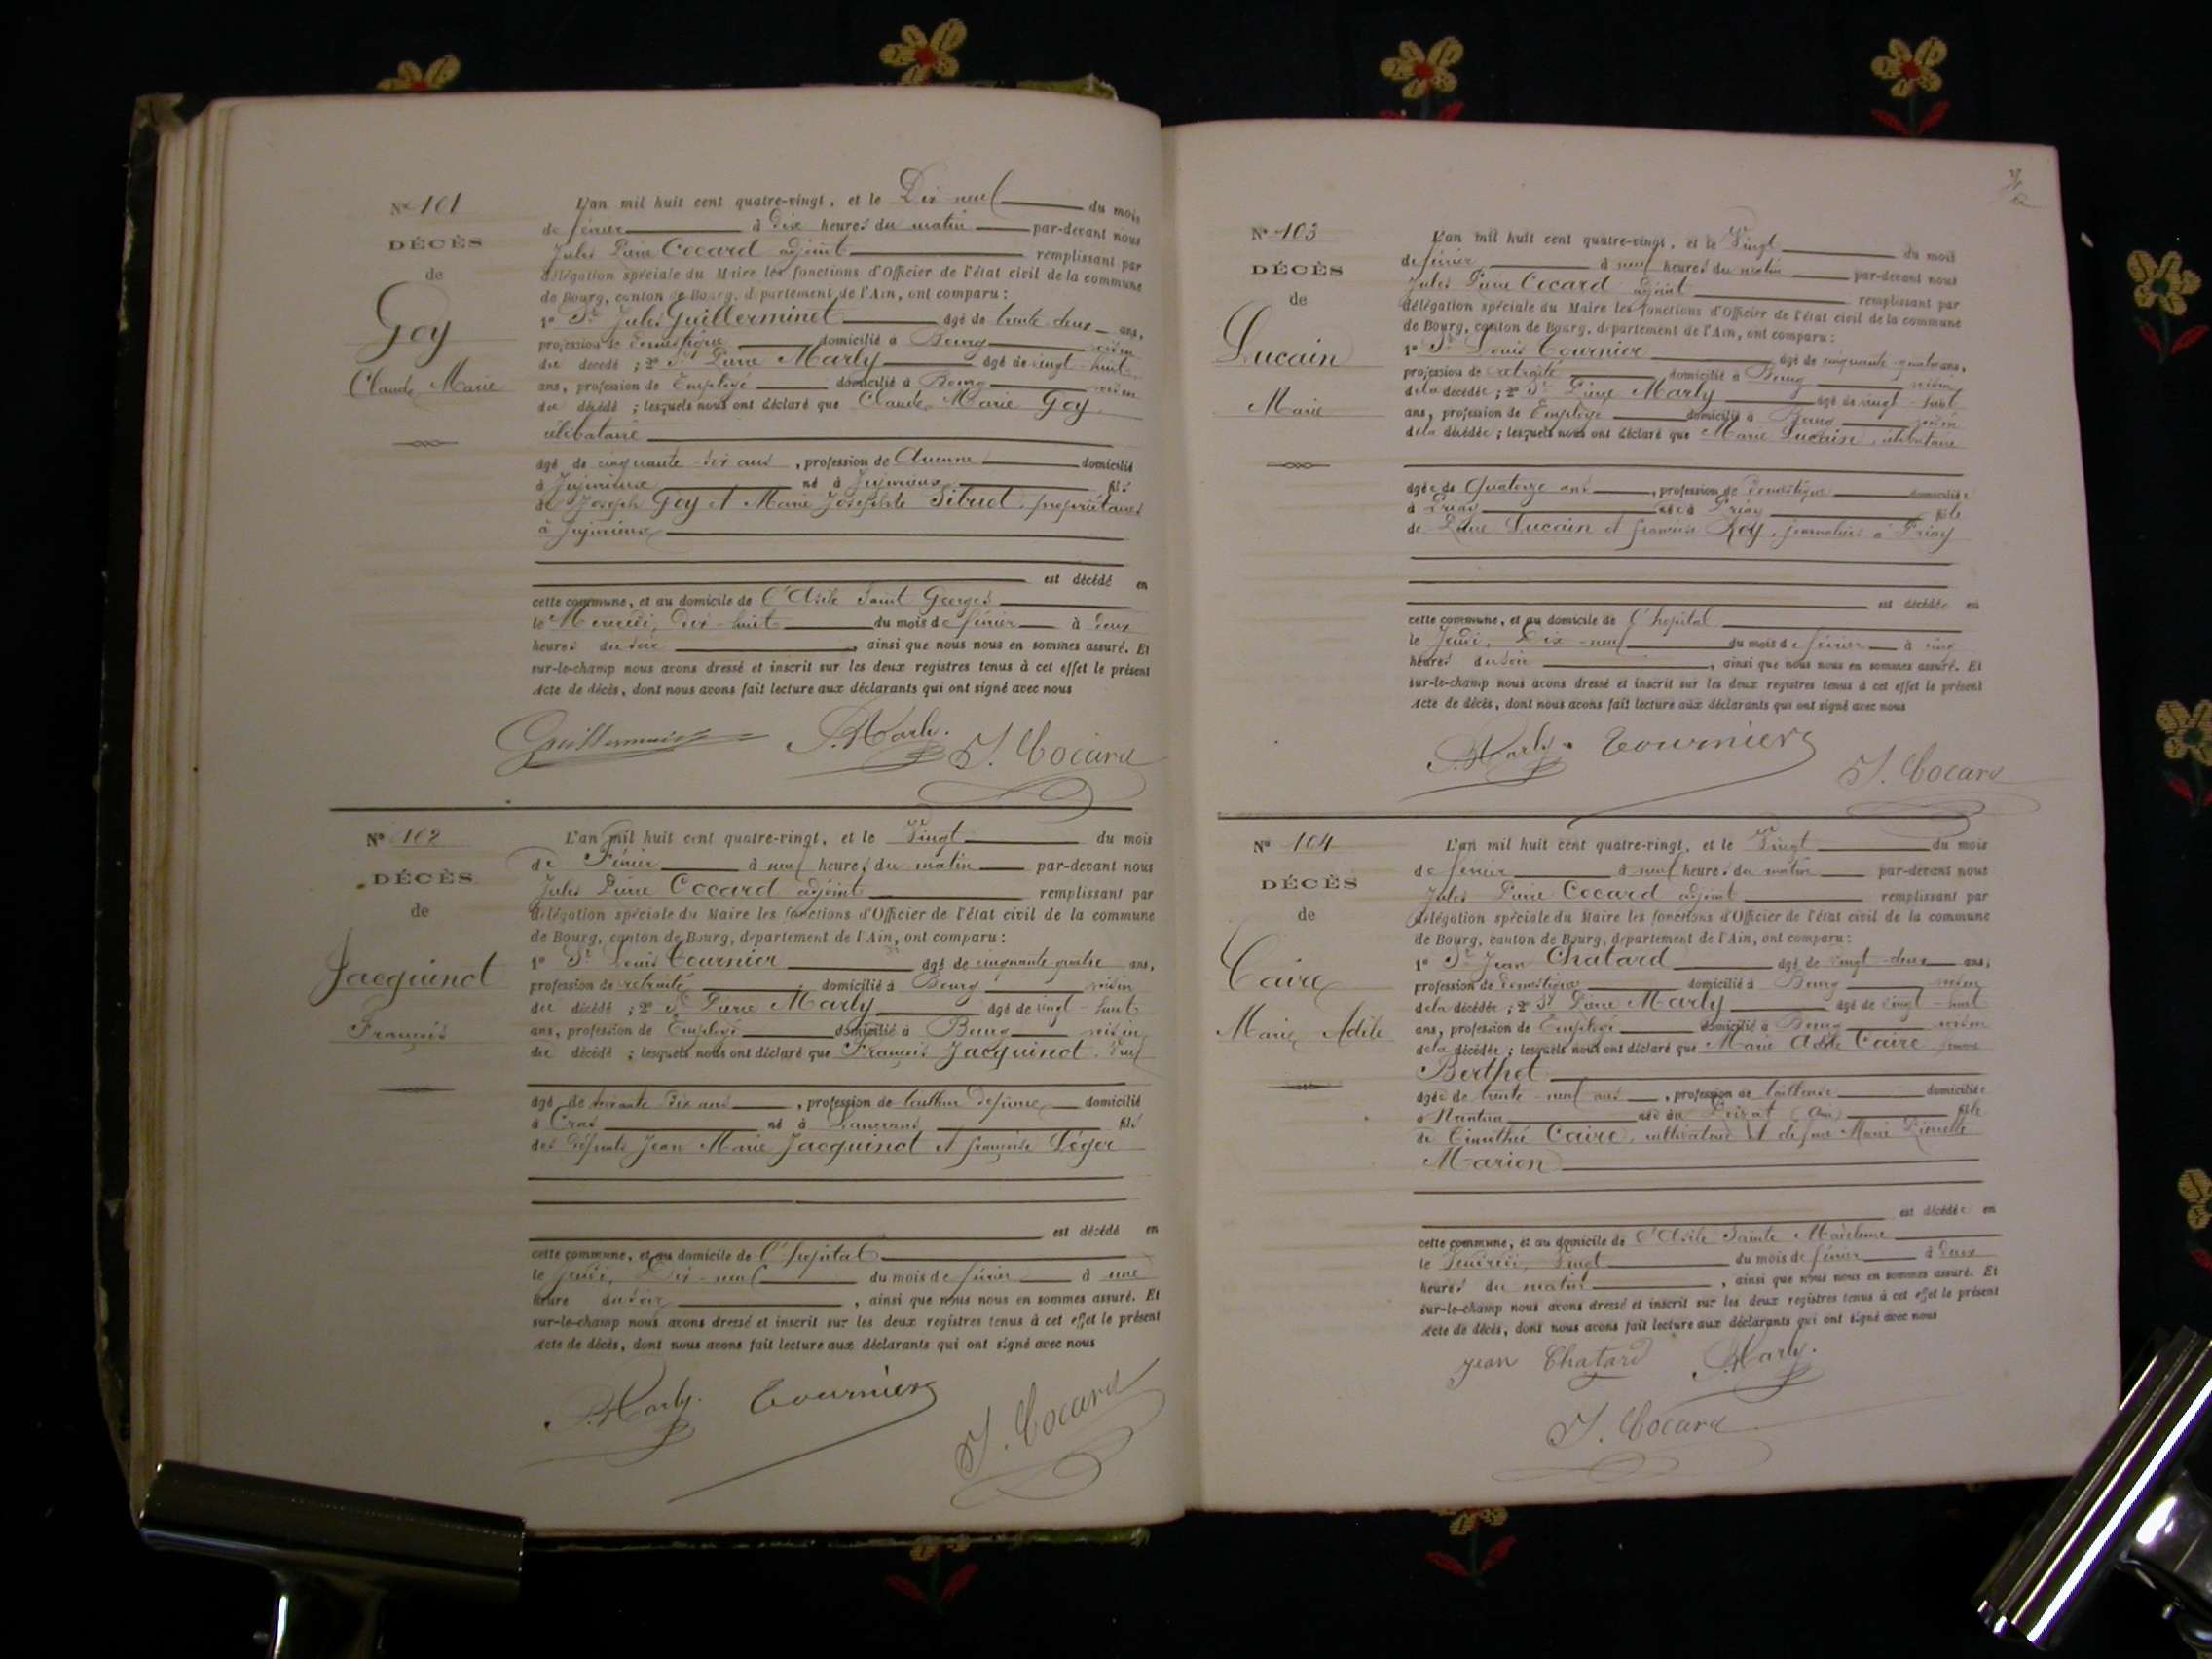 Nº 101
DÉCÈS
de
Goy
Claude Marie
L'an mil huit cent quatre-vingt, et le Dix neuf du mois
de février à dix heures du matin par-devant nous
Jules Pierre Cocard adjoint remplissant par
délégation spéciale du Maire les fonctions d'Officier de l'état civil de la commune
de Bourg, canton de Bourg, département de l'Ain, ont comparu :
1º Sr Jules Guillerminet âgé de trente deux ans,
profession de Domestique domicilié à Bourg voisin
du décédé ; 2º Sr Pierre Marly âgé de vingt-huit
ans, profession de Employé domicilié à Bourg voisin
du décédé ; lesquels nous ont déclaré que Claude Marie Goy
célibataire
âgé de cinquante dix ans, profession de Aucune domicilié
à Jujurieux né à Jujurieux fils
de Joseph Goy et Marie Josephte Sibuet, propriétaires
à Jujurieux
est décédé en
cette commune, et au domicile de l'Asile Saint Georges
le Mercredi, dix-huit du mois de février à deux
heures du soir, ainsi que nous nous en sommes assuré. Et
sur-le-champ nous avons dressé et inscrit sur les deux registres tenus à cet effet le présent
Acte de décès, dont nous avons fait lecture aux déclarants qui ont signé avec nous
Guillerminet P. Marly. J. Cocard
Nº 102
DÉCÈS
de
Jacquinot
François
L'an mil huit cent quatre-vingt, et le Vingt du mois
de Février à neuf heures du matin par-devant nous
Jules Pierre Cocard adjoint remplissant par
délégation spéciale du Maire les fonctions d'Officier de l'état civil de la commune
de Bourg, canton de Bourg, département de l'Ain, ont comparu :
1º Sr Louis Tournier âgé de cinquante quatre ans,
profession de retraité domicilié à Bourg voisin
du décédé ; 2º Sr Pierre Marly âgé de vingt-huit
ans, profession de Employé domicilié à Bourg voisin
du décédé ; lesquels nous ont déclaré que François Jacquinot, veuf
âgé de soixante dix ans, profession de domicilié
à Cras né à fils
des défunts Jean Marie Jacquinot et françoise Léger
est décédé en
cette commune, et au domicile de l'hopital
le jeudi, Dix-neuf du mois de février à une
heure du soir, ainsi que nous nous en sommes assuré. Et
sur-le-champ nous avons dressé et inscrit sur les deux registres tenus à cet effet le présent
Acte de décès, dont nous avons fait lecture aux déclarants qui ont signé avec nous
P. Marly. Tournier J. Cocard
Nº 103
DÉCÈS
de
Lucain
Marie
L'an mil huit cent quatre-vingt, et le Vingt du mois
de février à neuf heures du matin par-devant nous
Jules Pierre Cocard adjoint remplissant par
délégation spéciale du Maire les fonctions d'Officier de l'état civil de la commune
de Bourg, canton de Bourg, département de l'Ain, ont comparu :
1º Sr Louis Tournier âgé de cinquante quatre ans,
profession de retraité domicilié à Bourg voisin
de la décédée ; 2º Sr Pierre Marly âgé de vingt-huit
ans, profession de Employé domicilié à Bourg voisin
de la décédée ; lesquels nous ont déclaré que Marie Lucain, célibataire
âgée de Quatorze ans, profession de Domestique domiciliée
à Priay née à Priay fille
de Pierre Lucain et françoise Roy, journaliers à Priay
est décédée en
cette commune, et au domicile de l'hopital
le Jeudi, Dix-neuf du mois de février à cinq
heures du soir, ainsi que nous nous en sommes assuré. Et
sur-le-champ nous avons dressé et inscrit sur les deux registres tenus à cet effet le présent
Acte de décès, dont nous avons fait lecture aux déclarants qui ont signé avec nous
P. Marly. Tournier J. Cocard
Nº 104
DÉCÈS
de
Caire
Marie Adèle
L'an mil huit cent quatre-vingt, et le Vingt du mois
de février à neuf heures du matin par-devant nous
Jules Pierre Cocard adjoint remplissant par
délégation spéciale du Maire les fonctions d'Officier de l'état civil de la commune
de Bourg, canton de Bourg, département de l'Ain, ont comparu :
1º Sr Jean Chatard âgé de vingt-deux ans,
profession de Domestique domicilié à Bourg voisin
de la décédée ; 2º Sr Pierre Marly âgé de vingt-huit
ans, profession de Employé domicilié à Bourg voisin
de la décédée ; lesquels nous ont déclaré que Marie Adèle Caire femme
Berthet
âgée de trente-neuf ans, profession de tailleuse domiciliée
à Nantua née au Poizat (Ain) fille
de Timothée Caire, cultivateur et de feue Marie Pierrette
Marion
est décédée en
cette commune, et au domicile de l'Asile Sainte Madeleine
le Vendredi, Vingt du mois de février à deux
heures du matin, ainsi que nous nous en sommes assuré. Et
sur-le-champ nous avons dressé et inscrit sur les deux registres tenus à cet effet le présent
Acte de décès, dont nous avons fait lecture aux déclarants qui ont signé avec nous
Jean Chatard P. Marly.
J. Cocard